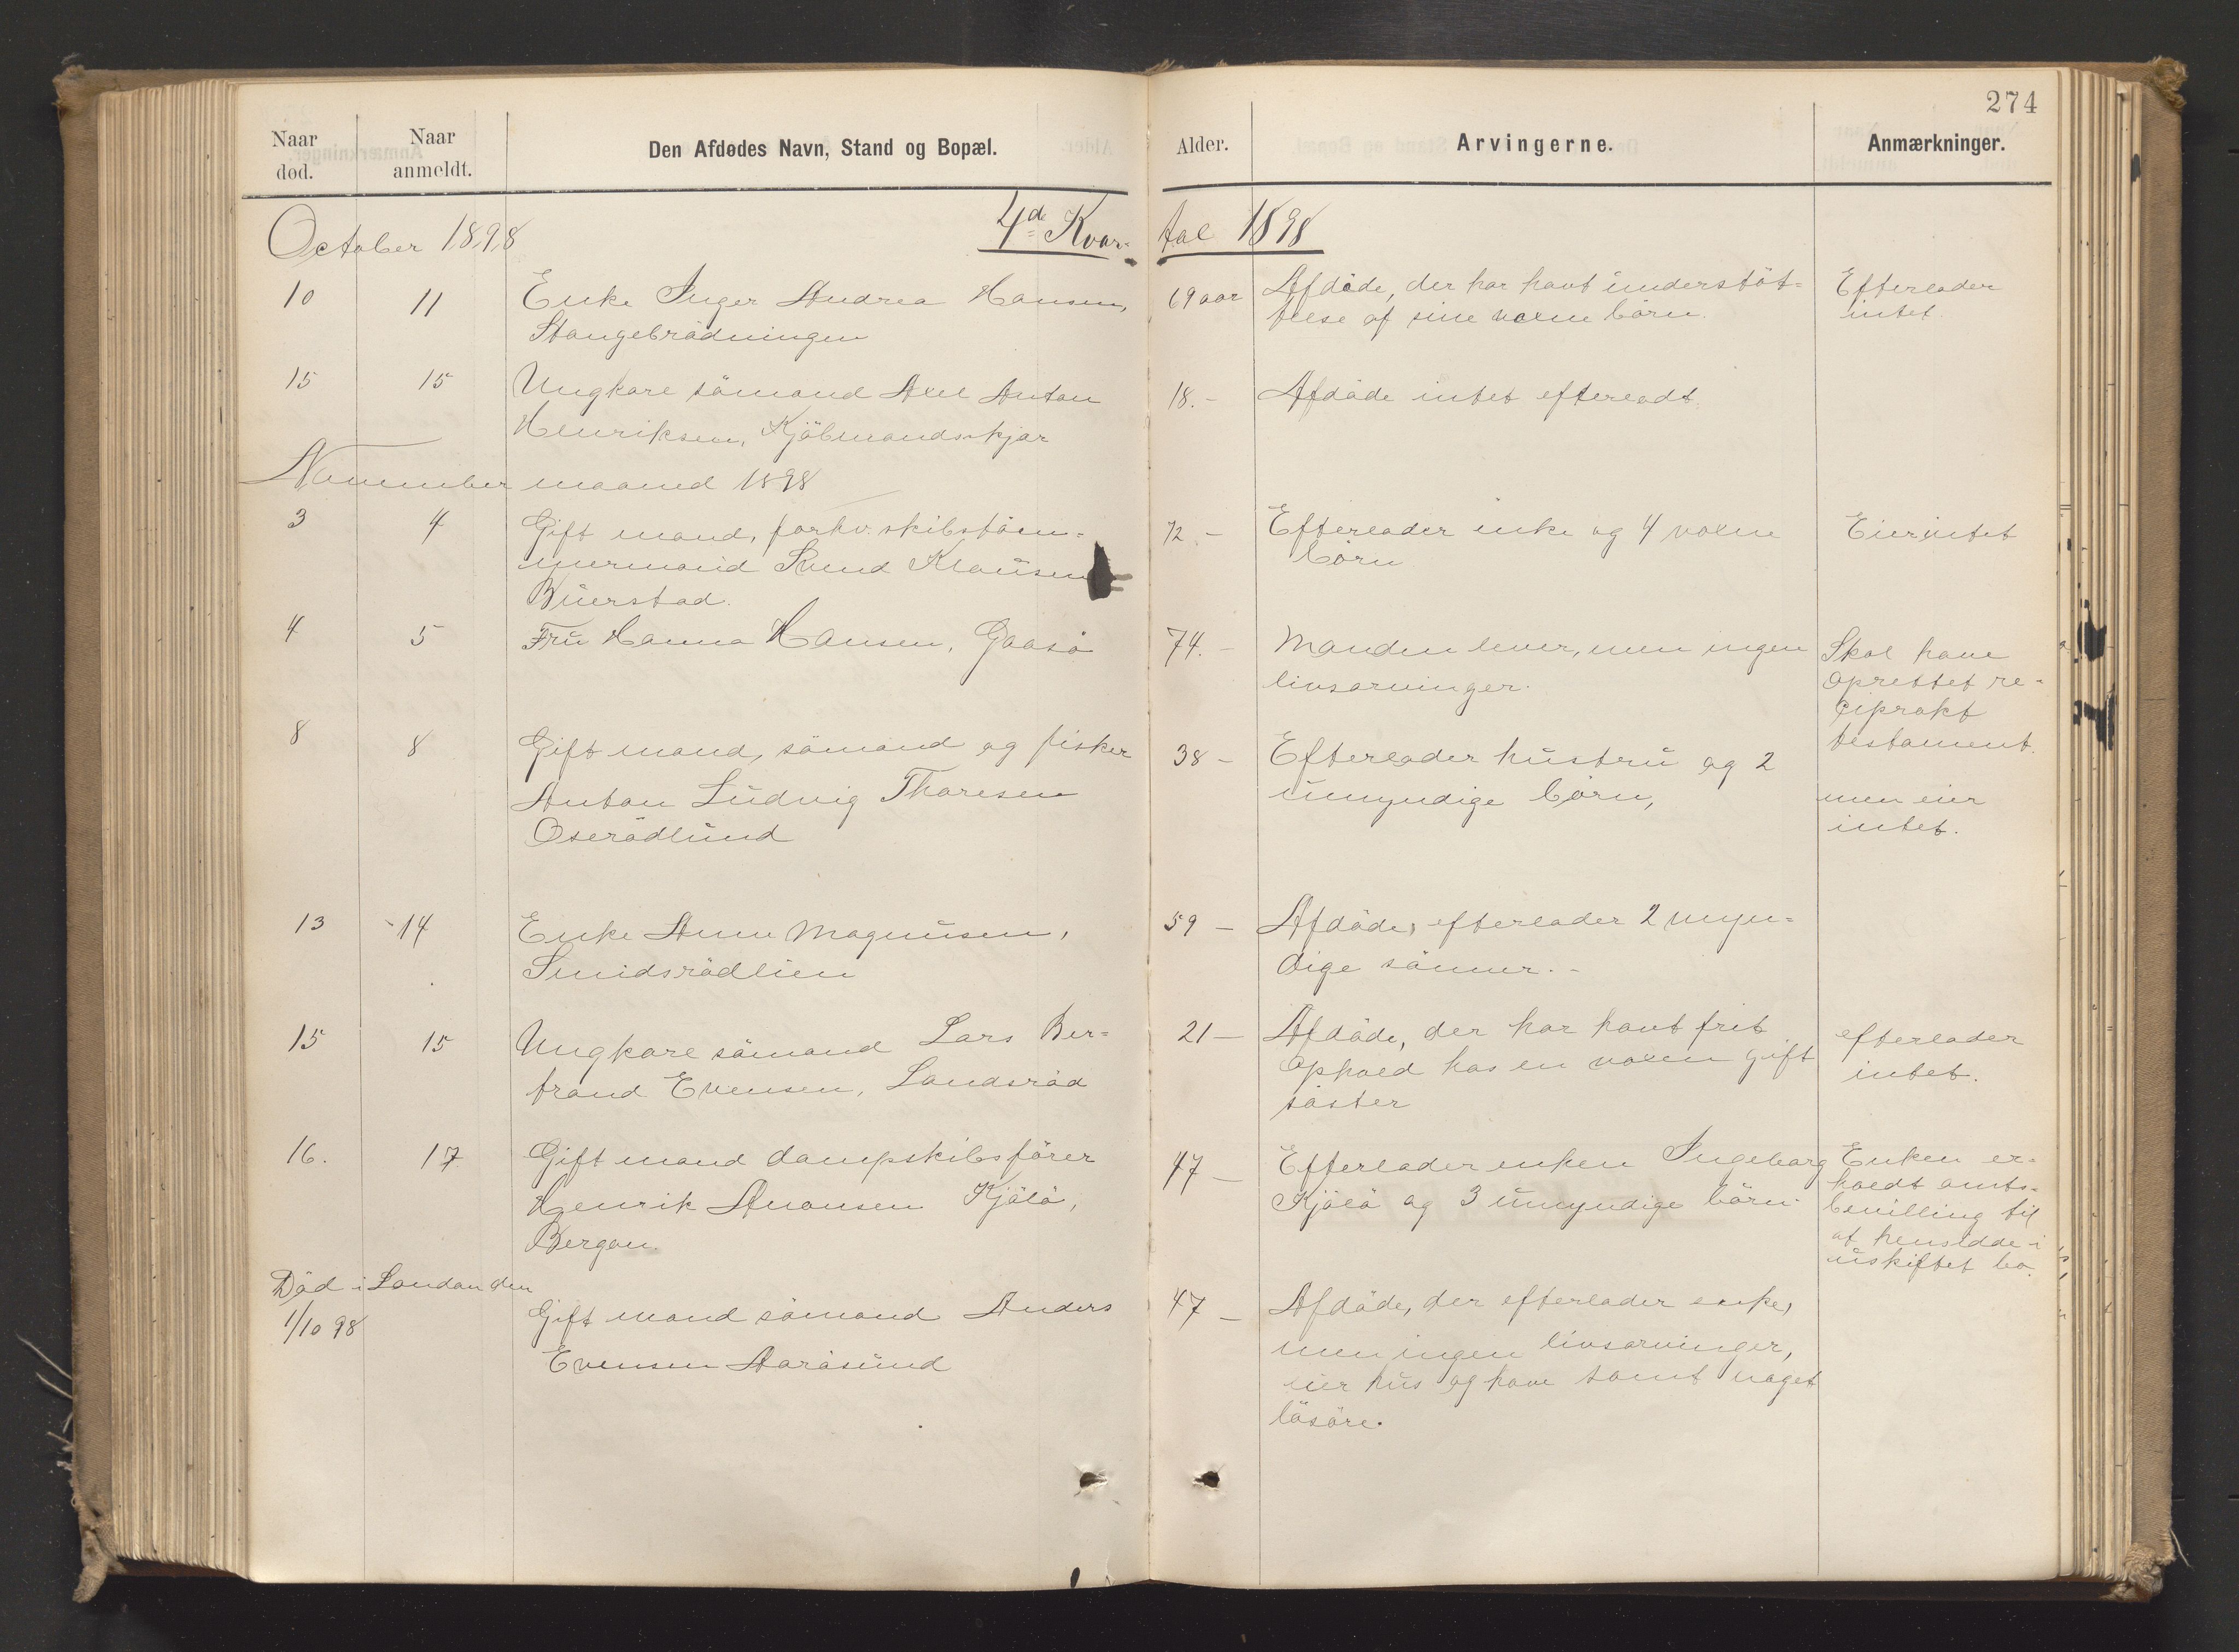 274
Naar død.
Naar anmeldt.
Den Afdødes Navn, Stand og Bopæl.
Alder.
Arvingerne.
Anmærkninger.
October 1898
4de Kvar=
tal 1898
10 11 Enke Inger Andrea Hansen,
Stangebrådningen
69 aar
Afdöde, der har havt understöt=
telse af sine voxne börn.
Efterlader
intet.
15 15 Ungkarl sömand Axel Anton
Henriksen, Kjöbmandsskjær
18. -
Afdöde intet efterladt
November maaned 1898
3 4 Gift mand, forhv. skibstöm=
mermand Svend Klausen
Buerstad.
72 -
Efterlader enke og 4 voxne
börn
Eier intet
4 5 Fru Hanna Hansen, Gaasö
74. -
Manden lever, men ingen
livsarvinger.
Skal have
oprettet re=
ciprokt
testament.
8 8 Gift mand, sömand og fisker
Anton Ludvig Thoresen
Oserödlund
38 -
Efterlader hustru og 2
umyndige börn,
men eier
intet.
13 14 Enke Anne Magnusen,
Smidsrödlien
59 -
Afdöde, efterlader 2 myn=
dige sönner. -
15 15 Ungkarl sömand Lars Ber=
trand Evensen, Landsröd
21 -
Afdöde, der har havt frit
ophold hos en voxen gift
söster
efterlader
intet.
16. 17 Gift mand dampskibsförer
Henrik Kjölö,
Bergan.
47 -
Efterlader enken Ingeborg
Kjölö og 3 umyndige börn.
Enken er=
holdt amts=
bevilling til
at hensidde i
uskiftet bo.
Död i London den
1/10 98
Gift mand sömand Anders
Evensen Aarösund
47 -
Afdöde, der efterlader enke,
men ingen livsarvinger,
eier hus og have samt noget
lösöre.